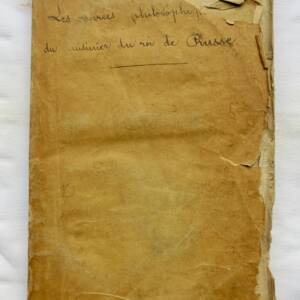 Les soirées philosophiques
du cuisinier du roi de Prusse